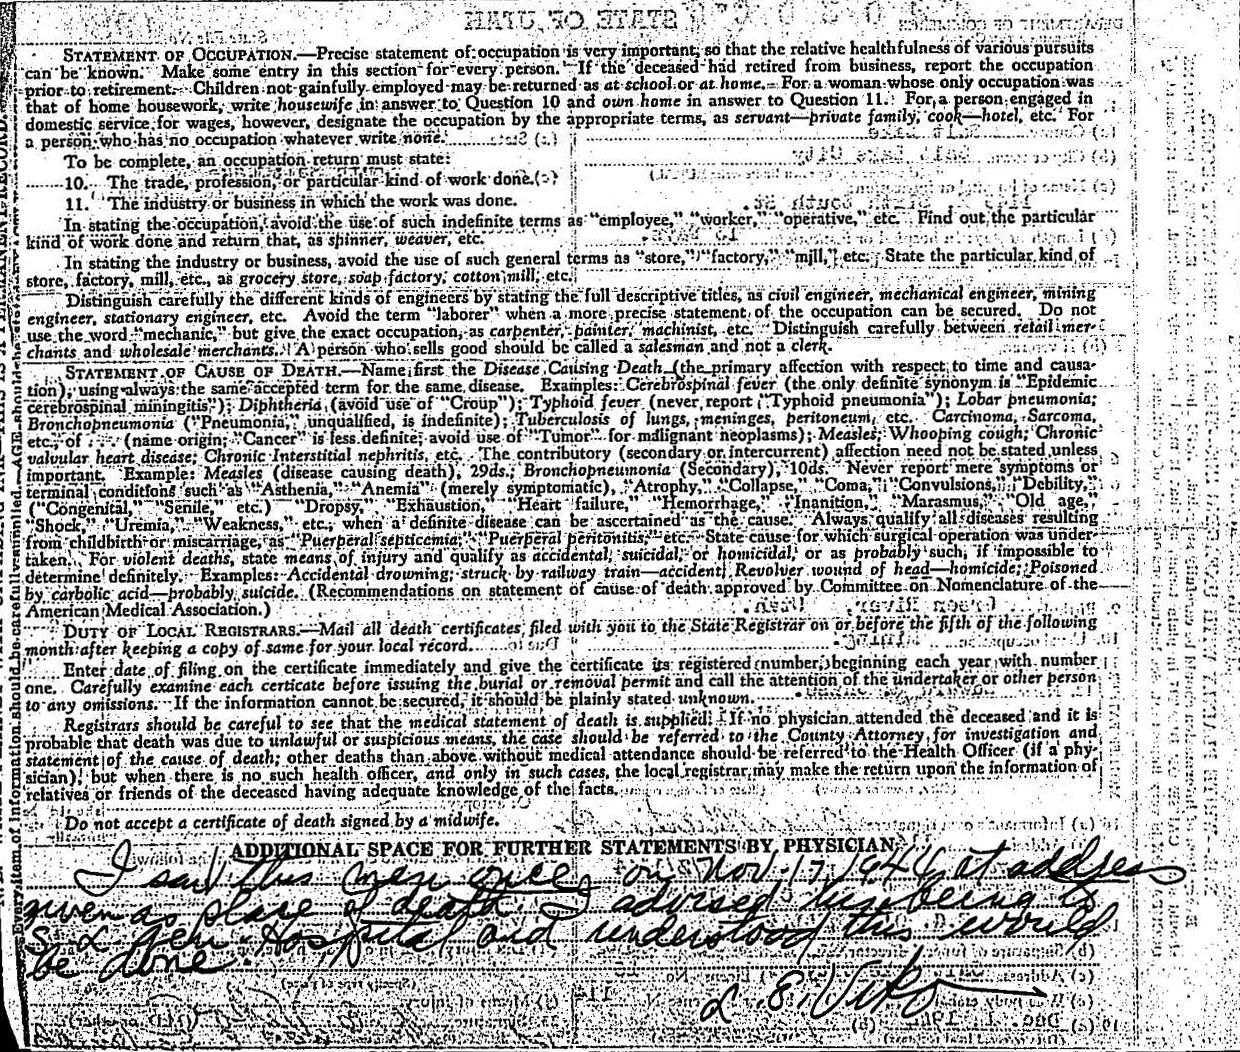 STATE OF UTAH
STATEMENT OF OCCUPATION.—Precise statement of occupation is very important, so that the relative healthfulness of various pursuits
can be known. Make some entry in this section for every person. If the deceased had retired from business, report the occupation
prior to retirement. Children not gainfully employed may be returned as at school or at home. For a woman whose only occupation was
that of home housework, write housewife in answer to Question 10 and own home in answer to Question 11. For a person engaged in
domestic service for wages, however, designate the occupation by the appropriate terms, as servant—private family, cook—hotel, etc. For
a person who has no occupation whatever write none.
To be complete, an occupation return must state:
10. The trade, profession, or particular kind of work done.
11. The industry or business in which the work was done.
In stating the occupation, avoid the use of such indefinite terms as "employee," "worker," "operative," etc. Find out the particular
kind of work done and return that, as spinner, weaver, etc.
In stating the industry or business, avoid the use of such general terms as "store," "factory," "mill," etc. State the particular kind of
store, factory, mill, etc., as grocery store, soap factory, cotton mill, etc.
Distinguish carefully the different kinds of engineers by stating the full descriptive titles, as civil engineer, mechanical engineer, mining
engineer, stationary engineer, etc. Avoid the term "laborer" when a more precise statement of the occupation can be secured. Do not
use the word "mechanic," but give the exact occupation, as carpenter, painter, machinist, etc. Distinguish carefully between retail mer-
chants and wholesale merchants. A person who sells good should be called a salesman and not a clerk.
STATEMENT OF CAUSE OF DEATH.—Name first the Disease Causing Death (the primary affection with respect to time and causa-
tion), using always the same accepted term for the same disease. Examples: Cerebrospinal fever (the only definite synonym is "Epidemic
cerebrospinal miningitis,"); Diphtheria (avoid use of "Croup"); Typhoid fever (never report "Typhoid pneumonia"); Lobar pneumonia;
Bronchopneumonia ("Pneumonia," unqualified, is indefinite); Tuberculosis of lungs, meninges, peritoneum, etc. Carcinoma, Sarcoma,
etc., of ... (name origin; "Cancer" is less definite; avoid use of "Tumor" for malignant neoplasms); Measles; Whooping cough; Chronic
valvular heart disease; Chronic Interstitial nephritis, etc. The contributory (secondary or intercurrent) affection need not be stated unless
important. Example: Measles (disease causing death), 29ds.; Bronchopneumonia (Secondary), 10ds. Never report mere symptoms or
terminal conditions such as "Asthenia," "Anemia" (merely symptomatic), "Atrophy," "Collapse," "Coma," "Convulsions," "Debility,"
("Congenital," "Senile," etc.) "Dropsy," "Exhaustion," "Heart failure," "Hemorrhage," "Inanition," "Marasmus," "Old age,"
"Shock," "Uremia," "Weakness," etc., when a definite disease can be ascertained as the cause. Always qualify all diseases resulting
from childbirth or miscarriage, as "Puerperal septicemia," "Puerperal peritonitis," etc. State cause for which surgical operation was under-
taken. For violent deaths, state means of injury and qualify as accidental, suicidal, or homicidal, or as probably such, if impossible to
determine definitely. Examples: Accidental drowning; struck by railway train—accident; Revolver wound of head—homicide; Poisoned
by carbolic acid—probably suicide. (Recommendations on statement of cause of death approved by Committee on Nomenclature of the
American Medical Association.)
DUTY OF LOCAL REGISTRARS.—Mail all death certificates filed with you to the State Registrar on or before the fifth of the following
month after keeping a copy of same for your local record.
Enter date of filing on the certificate immediately and give the certificate its registered number, beginning each year with number
one. Carefully examine each certicate before issuing the burial or removal permit and call the attention of the undertaker or other person
to any omissions. If the information cannot be secured, it should be plainly stated unknown.
Registrars should be careful to see that the medical statement of death is supplied. If no physician attended the deceased and it is
probable that death was due to unlawful or suspicious means, the case should be referred to the County Attorney for investigation and
statement of the cause of death; other deaths than above without medical attendance should be referred to the Health Officer (if a phy-
sician), but when there is no such health officer, and only in such cases, the local registrar may make the return upon the information of
relatives or friends of the deceased having adequate knowledge of the facts.
Do not accept a certificate of death signed by a midwife.
ADDITIONAL SPACE FOR FURTHER STATEMENTS BY PHYSICIAN
I saw this man once on Nov. 17 1944 at address
given as place of death. I advised his being to
S L Gen. Hospital and understood this would
be done.
L. E. Viko